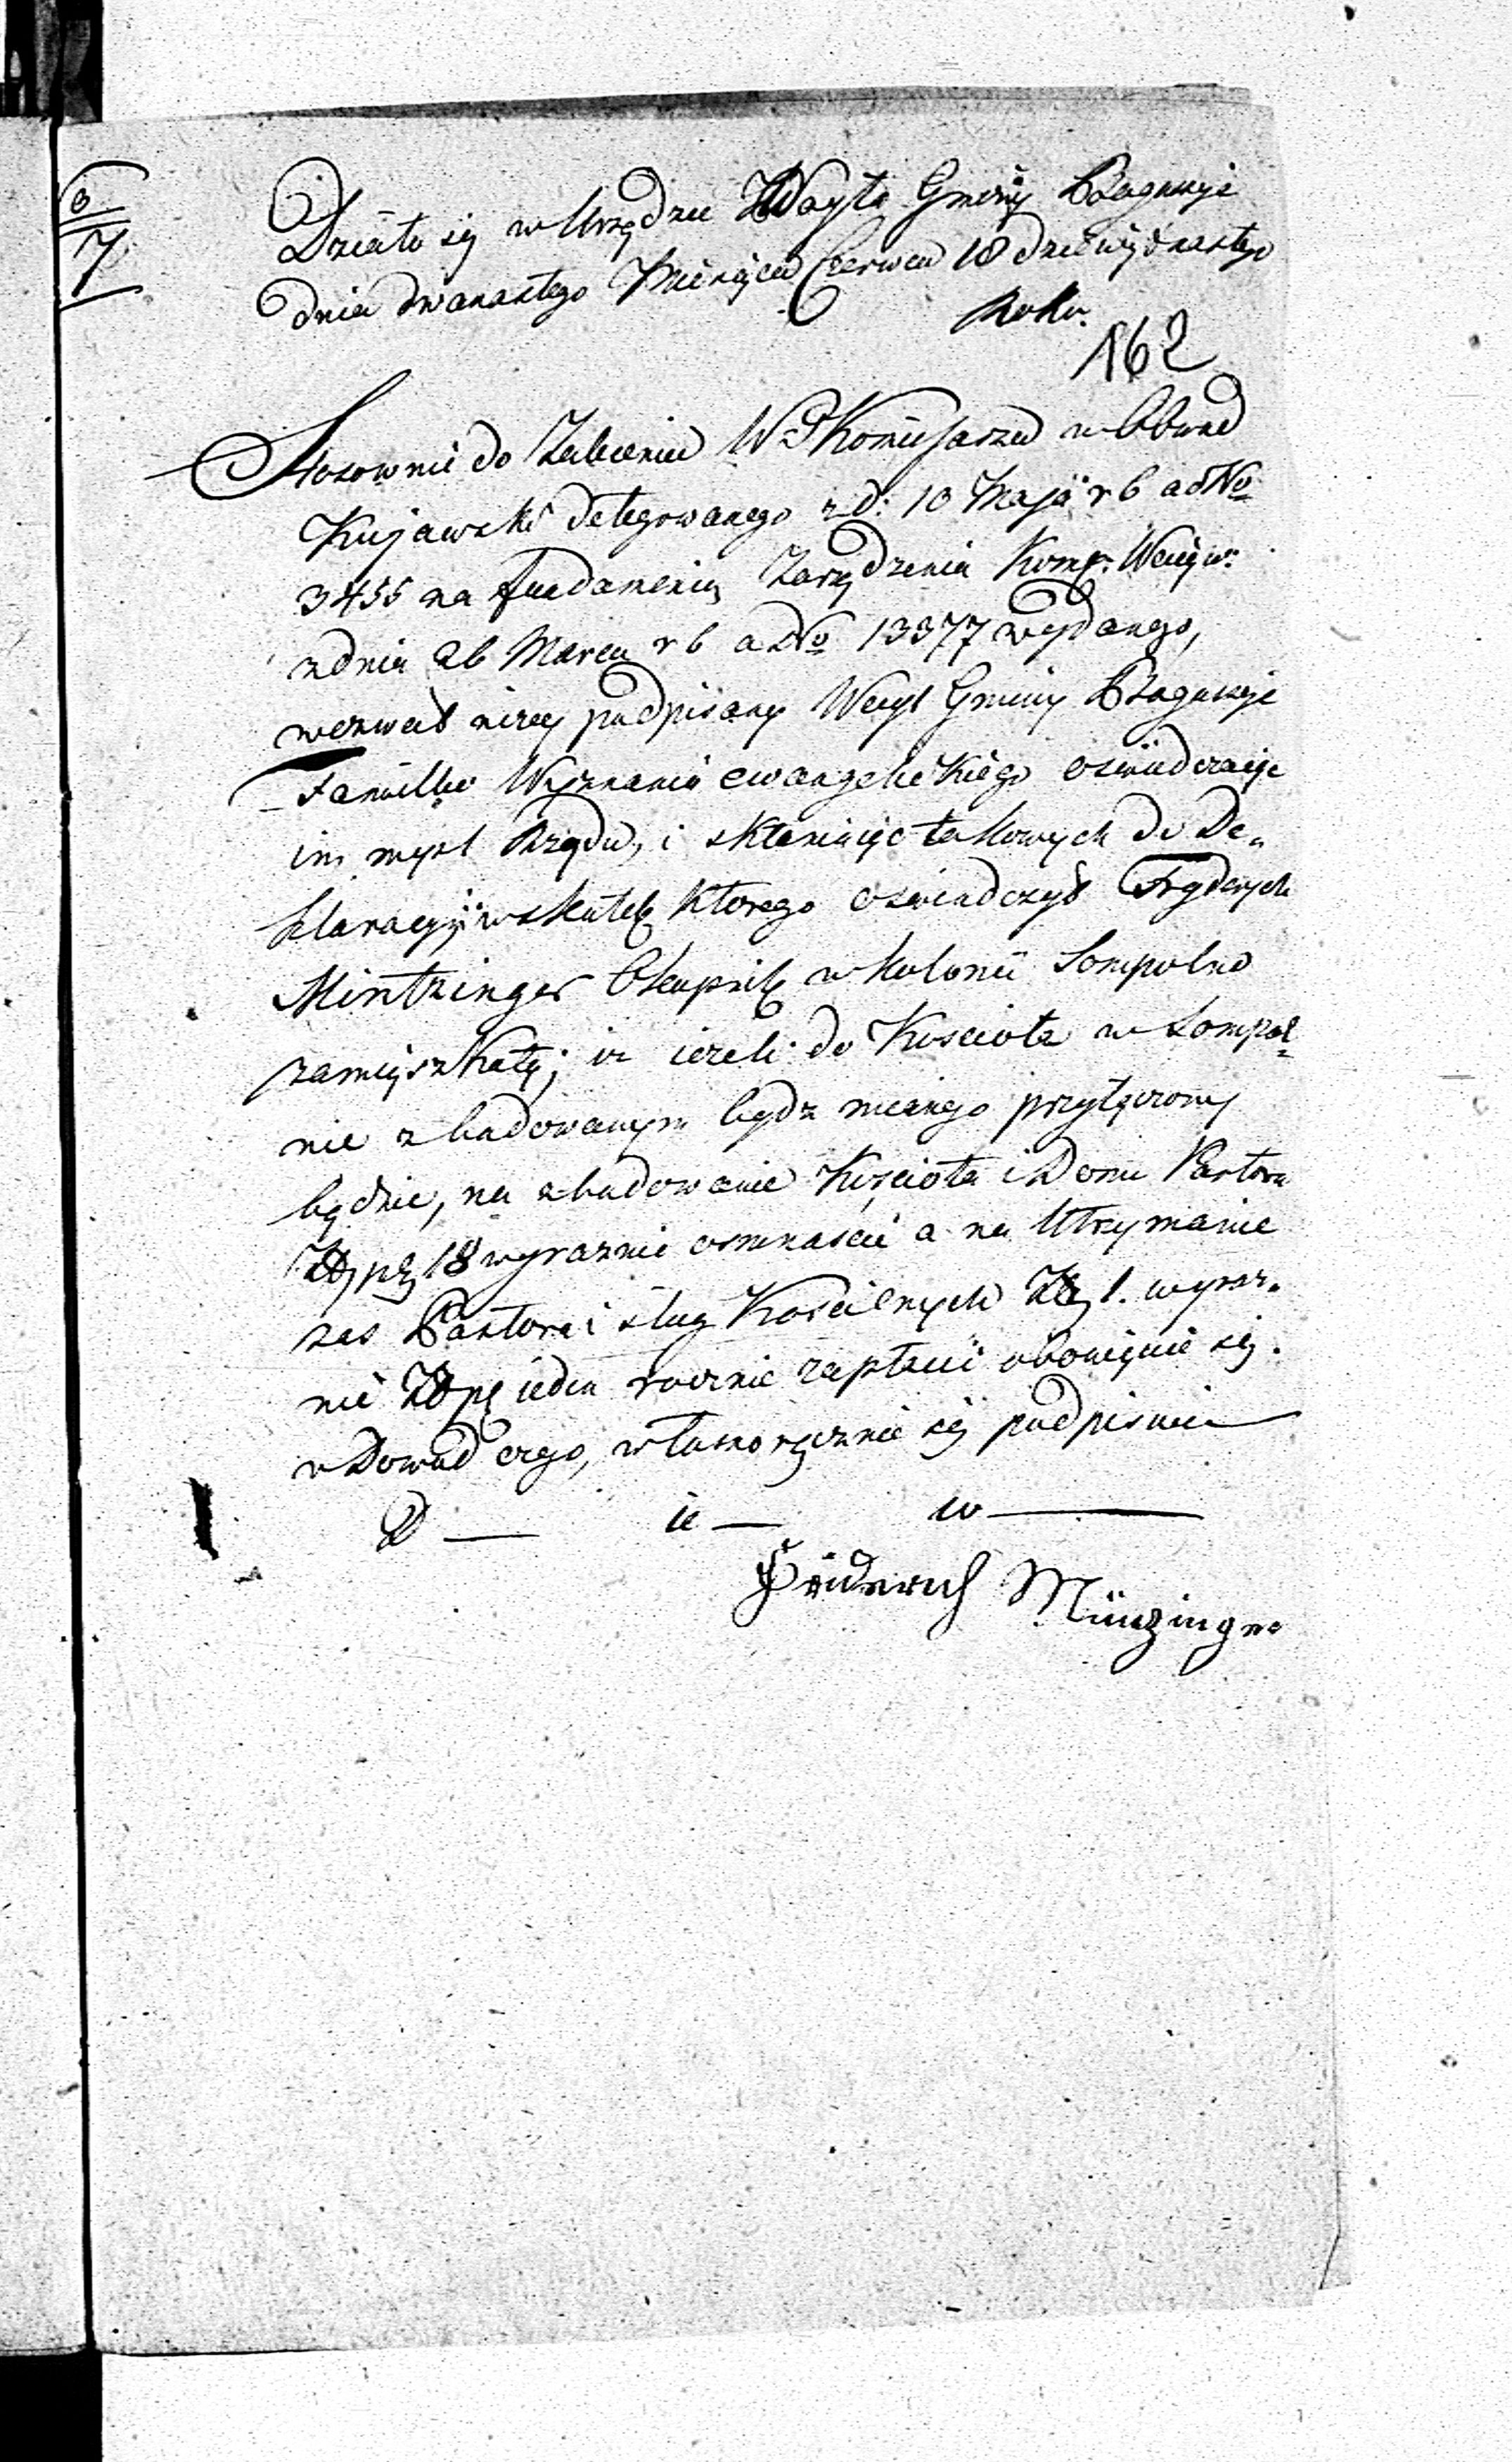 6
7
Działo się w Urzędzie Woyta Gminy
dnia dwunastego Miesiąca Czerwca 18 dziewiętnastego
Roku.
162
Stosownie do Zalecenia WP Komissarza w Obwod
Kujawski delegowanego z d: 10 Maja r b ad No
3455 na fundamencie Zarządzenia Komp: Woiew:
z dnia 26 Marca r b ad No 13377 wydanego,
wezwał niżey podpisany Woyt Gminy
Familie Wyznania ewangelickiego oświadczaiąc
im mysl Rządu, i skłaniaiąc takowych do De„
klaracyi, wskutek ktorego oswiadczył Frydrych
Mintzinger Okupnik w kolonii Sompolno
zamięszkały; iż iezeli do Koscioła w Sompol„
nie zbudowanym bydz maiącego przyłączony
będzie, na zbudowanie Kościoła i Domu Pastora
Złp 18 wyraznie osmnaście a na Utrzymanie
zas Pastora i sług Koscielnych Zł 1. wyraz„
nie Złp ieden rocznie zapłacic obowięzuie się.
w Dowod czego, własnoręcznie się podpisuie
D — ie — w —
Friderich Münzinger